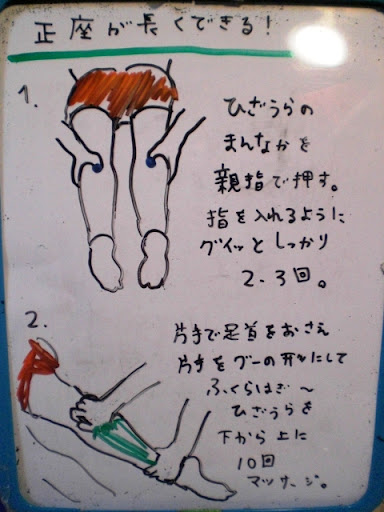 正座が長くできる!
1.
ひざうらの
まんなかを
親指で押す。
指を入れるように
グイッとしっかり
2.3回。
2.
片手で足首をおさえ
片手をグーの形にして
ふくらはぎ〜
ひざうらを
下から上に
10回
マッサージ。